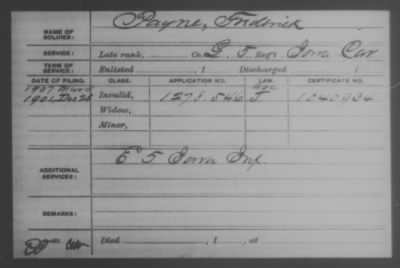 NAME OF SOLDIER: Payne, Frederick
SERVICE: Late rank, Co. L, 5 Reg't Iowa Cav
TERM OF SERVICE: Enlisted , 1 Discharged , 1
DATE OF FILING. CLASS. APPLICATION NO. LAW. CERTIFICATE NO.
1907
age
1901, Dec 28 Invalid, 1278.546 1040934
Widow,
Minor,
E 5 Iowa Inf
ADDITIONAL SERVICES:
REMARKS:
Died , 1 , at